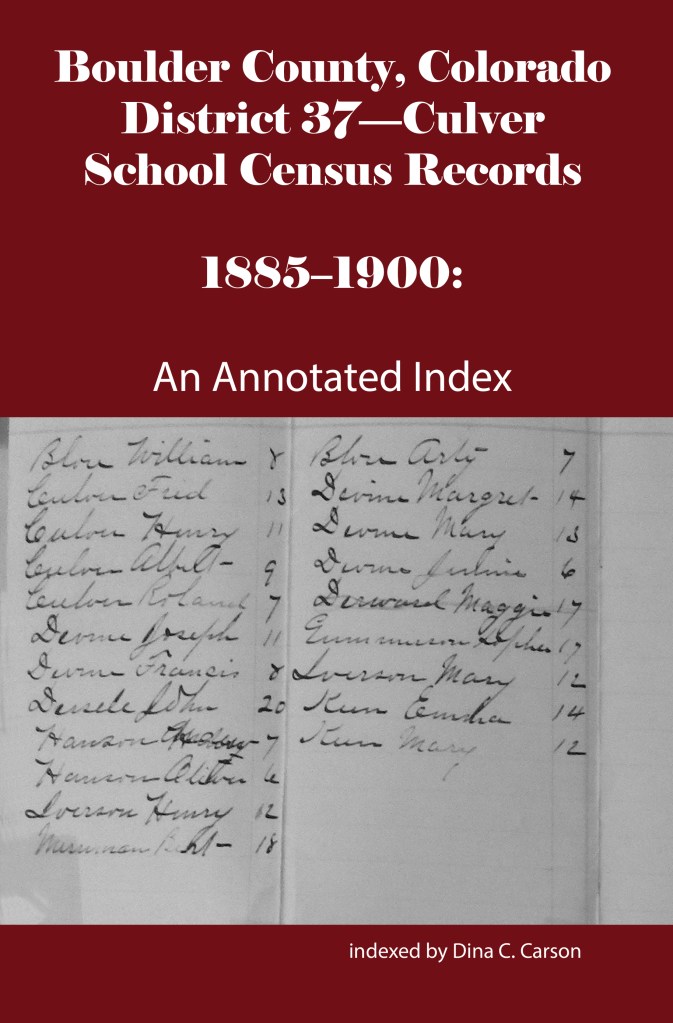 Boulder County, Colorado
District 37—Culver
School Census Records
1885–1900:
An Annotated Index
Blore William 8
Culver Fred 13
Culver Henry 11
Culver Albert 9
Culver Roland 7
Devine Joseph 11
Devine Francis 8
Deisele John 20
Hanson 7
Hanson Oliver 6
Iverson Henry 12
Merriman Bert 18
Blore Arty 7
Devine Margret 14
Devine Mary 13
Devine 6
Maggie 17
17
Iverson Mary 12
Keen Emma 14
Keen Mary 12
indexed by Dina C. Carson